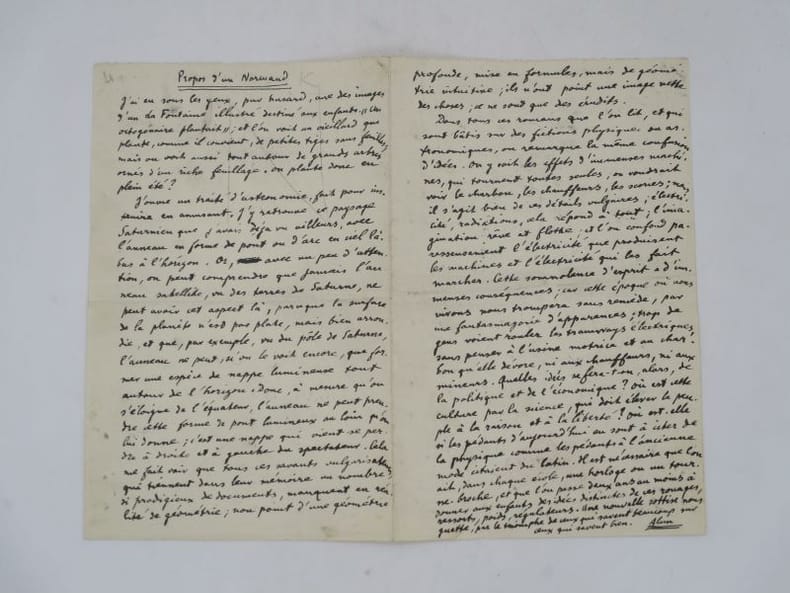 Propos d'un Normand
J'ai eu sous les yeux, par hasard, une des images
d'un La Fontaine illustré destiné aux enfants. « Un
octogénaire plantait » ; et l'on voit un vieillard qui
plante, comme il convient, de petites tiges sans feuilles,
mais on voit aussi tout autour de grands arbres
ornés d'un riche feuillage. On plante donc en
plein été ?
J'ouvre un traité d'astronomie, fait pour ins-
truire en amusant. J'y retrouve ce paysage
Saturnien que j'avais déjà vu ailleurs, avec
l'anneau en forme de pont ou d'arc en ciel là-
bas à l'horizon. Or, avec un peu d'atten-
tion, on peut comprendre que jamais l'an-
neau satellite, vu des terres de Saturne, ne
peut avoir cet aspect là, parce que la surface
de la planète n'est pas plate, mais bien arron-
die, et que, par exemple, vu du pôle de Saturne,
l'anneau ne peut, si on le voit encore, que for-
mer une espèce de nappe lumineuse tout
autour de l'horizon. Donc, à mesure qu'on
s'éloigne de l'équateur, l'anneau ne peut pren-
dre cette forme de pont lumineux au loin qu'on
lui donne ; c'est une nappe qui vient se per-
dre à droite et à gauche du spectateur. Cela
me fait voir que tous ces savants vulgarisateurs,
qui tiennent dans leur mémoire un nombre
si prodigieux de documents, manquent en réa-
lité de géométrie ; non point d'une géométrie
profonde, mise en formules, mais de géomé-
trie intuitive ; ils n'ont point une image nette
des choses ; ce ne sont que des érudits.
Dans tous ces romans que l'on lit, et qui
sont bâtis sur des fictions physiques ou as-
tronomiques, on remarque la même confusion
d'idées. On y voit les effets d'immenses machi-
nes, qui tournent toutes seules, on voudrait
voir le charbon, les chauffeurs, les scories ; mais
il s'agit bien de ces détails vulgaires, électri-
cité, radiations, cela répond à tout ; l'ima-
gination rêve et flotte et l'on confond pa-
resseusement l'électricité que produisent
les machines et l'électricité qui les fait
marcher. Cette somnolence d'esprit a d'im-
menses conséquences ; car cette époque où nous
vivons nous trompera sans remède, par
une fantasmagorie d'apparences ; trop de
gens voient rouler les tramways électriques,
sans penser à l'usine motrice et au char-
bon qu'elle dévore, ni aux chauffeurs, ni aux
mineurs. Quelles idées se fera-t-on, alors, de
la politique et de l'économique ? Où est cette
culture par la science, qui doit élever le peu-
ple à la raison et à la liberté ? Où est-elle
si les pédants d'aujourd'hui en sont à citer de
la physique comme les pédants à l'ancienne
mode citaient du latin. Il est nécessaire que l'on
ait, dans chaque école, une horloge ou un tour-
ne-broche, et que l'on passe deux ans au moins à
donner aux enfants des idées distinctes de ces rouages,
ressorts, poids, régulateurs. Une nouvelle sottise nous
guette, par le triomphe de ceux qui savent beaucoup sur
ceux qui savent bien. Alain